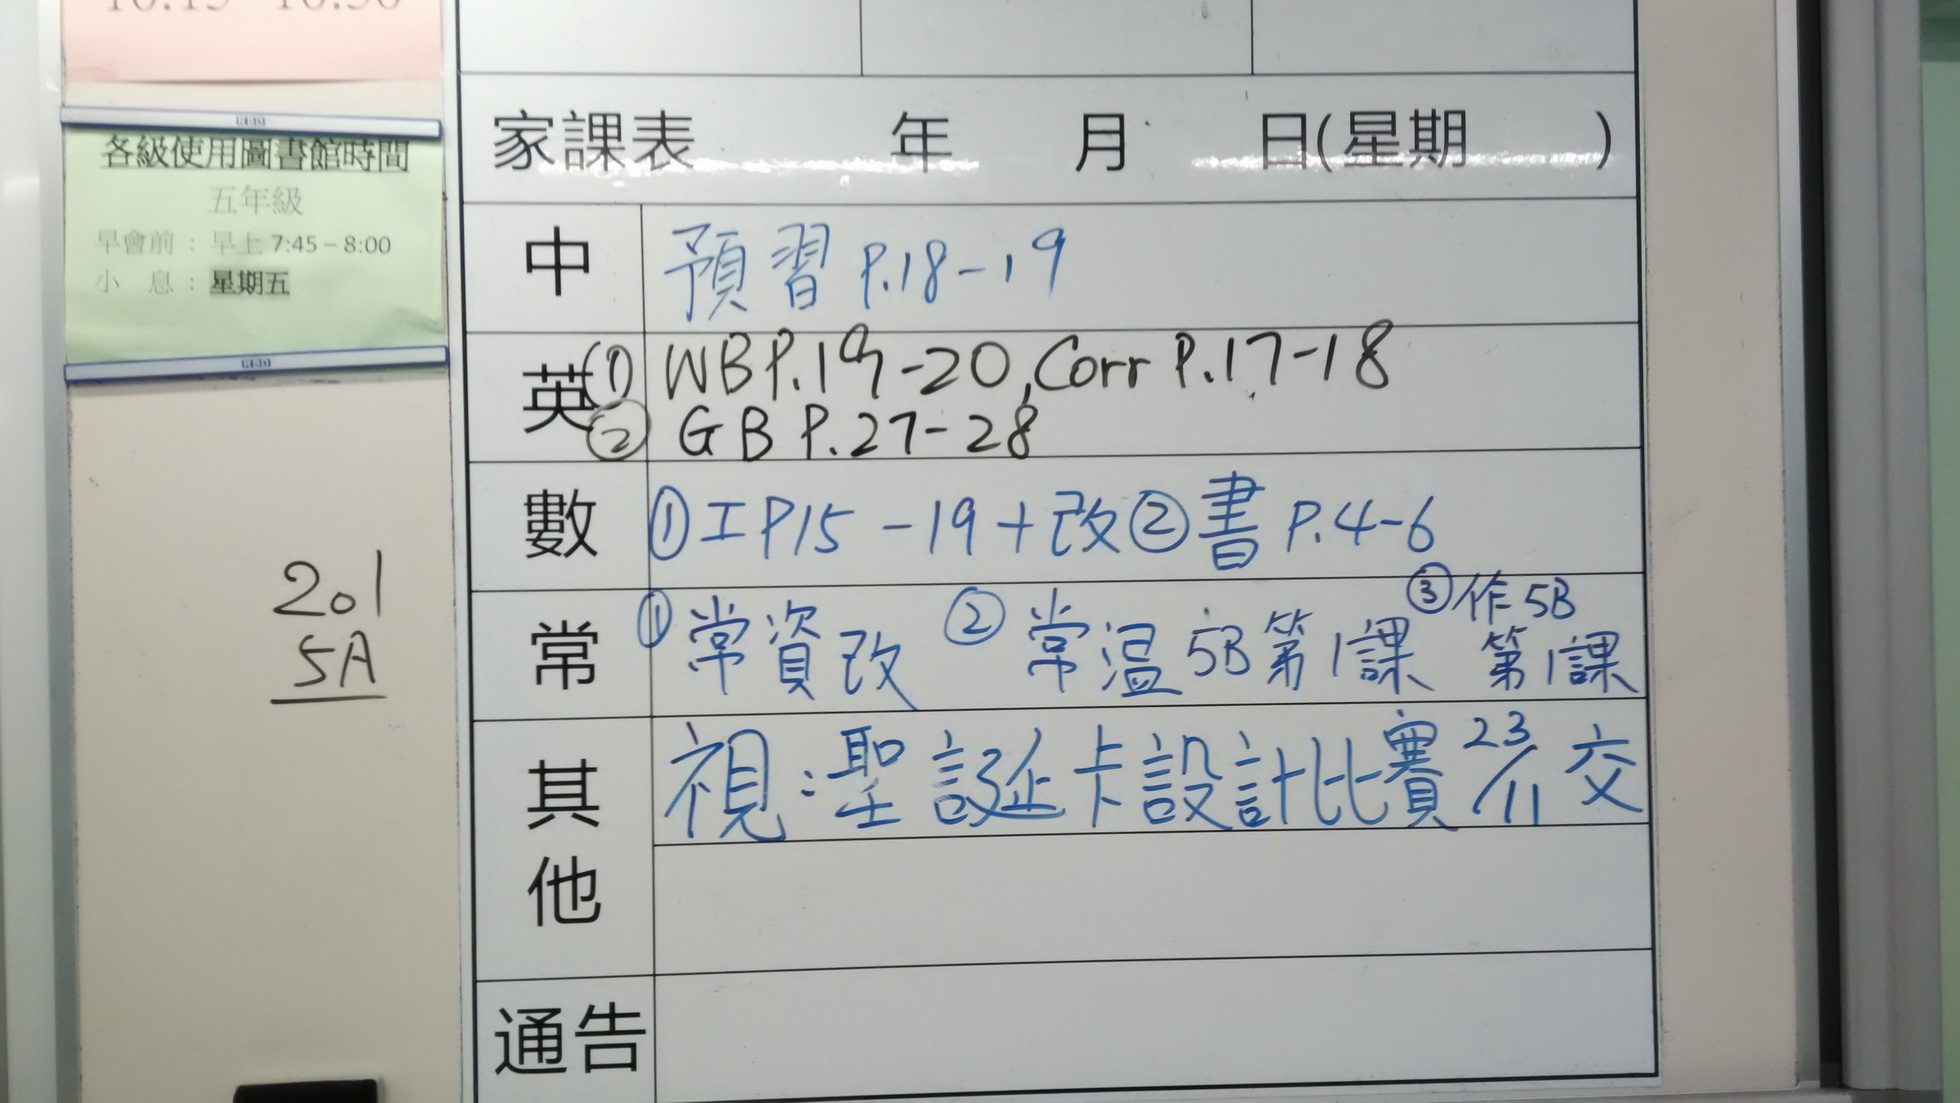 各級使用圖書館時間
五年級
早會前：早上 7:45 – 8:00
小 息：星期五
201
5A
家課表 年 月 日(星期 )
中 預習 P.18-19
英 (1) WB P.19-20, Corr P.17-18
② GB P.27-28
數 ①工P15-19+改②書 P.4-6
常 ①常資改 ②常溫 5B第1課 ③作5B
第1課
其他 視：聖誕卡設計比賽 23/11 交
通告